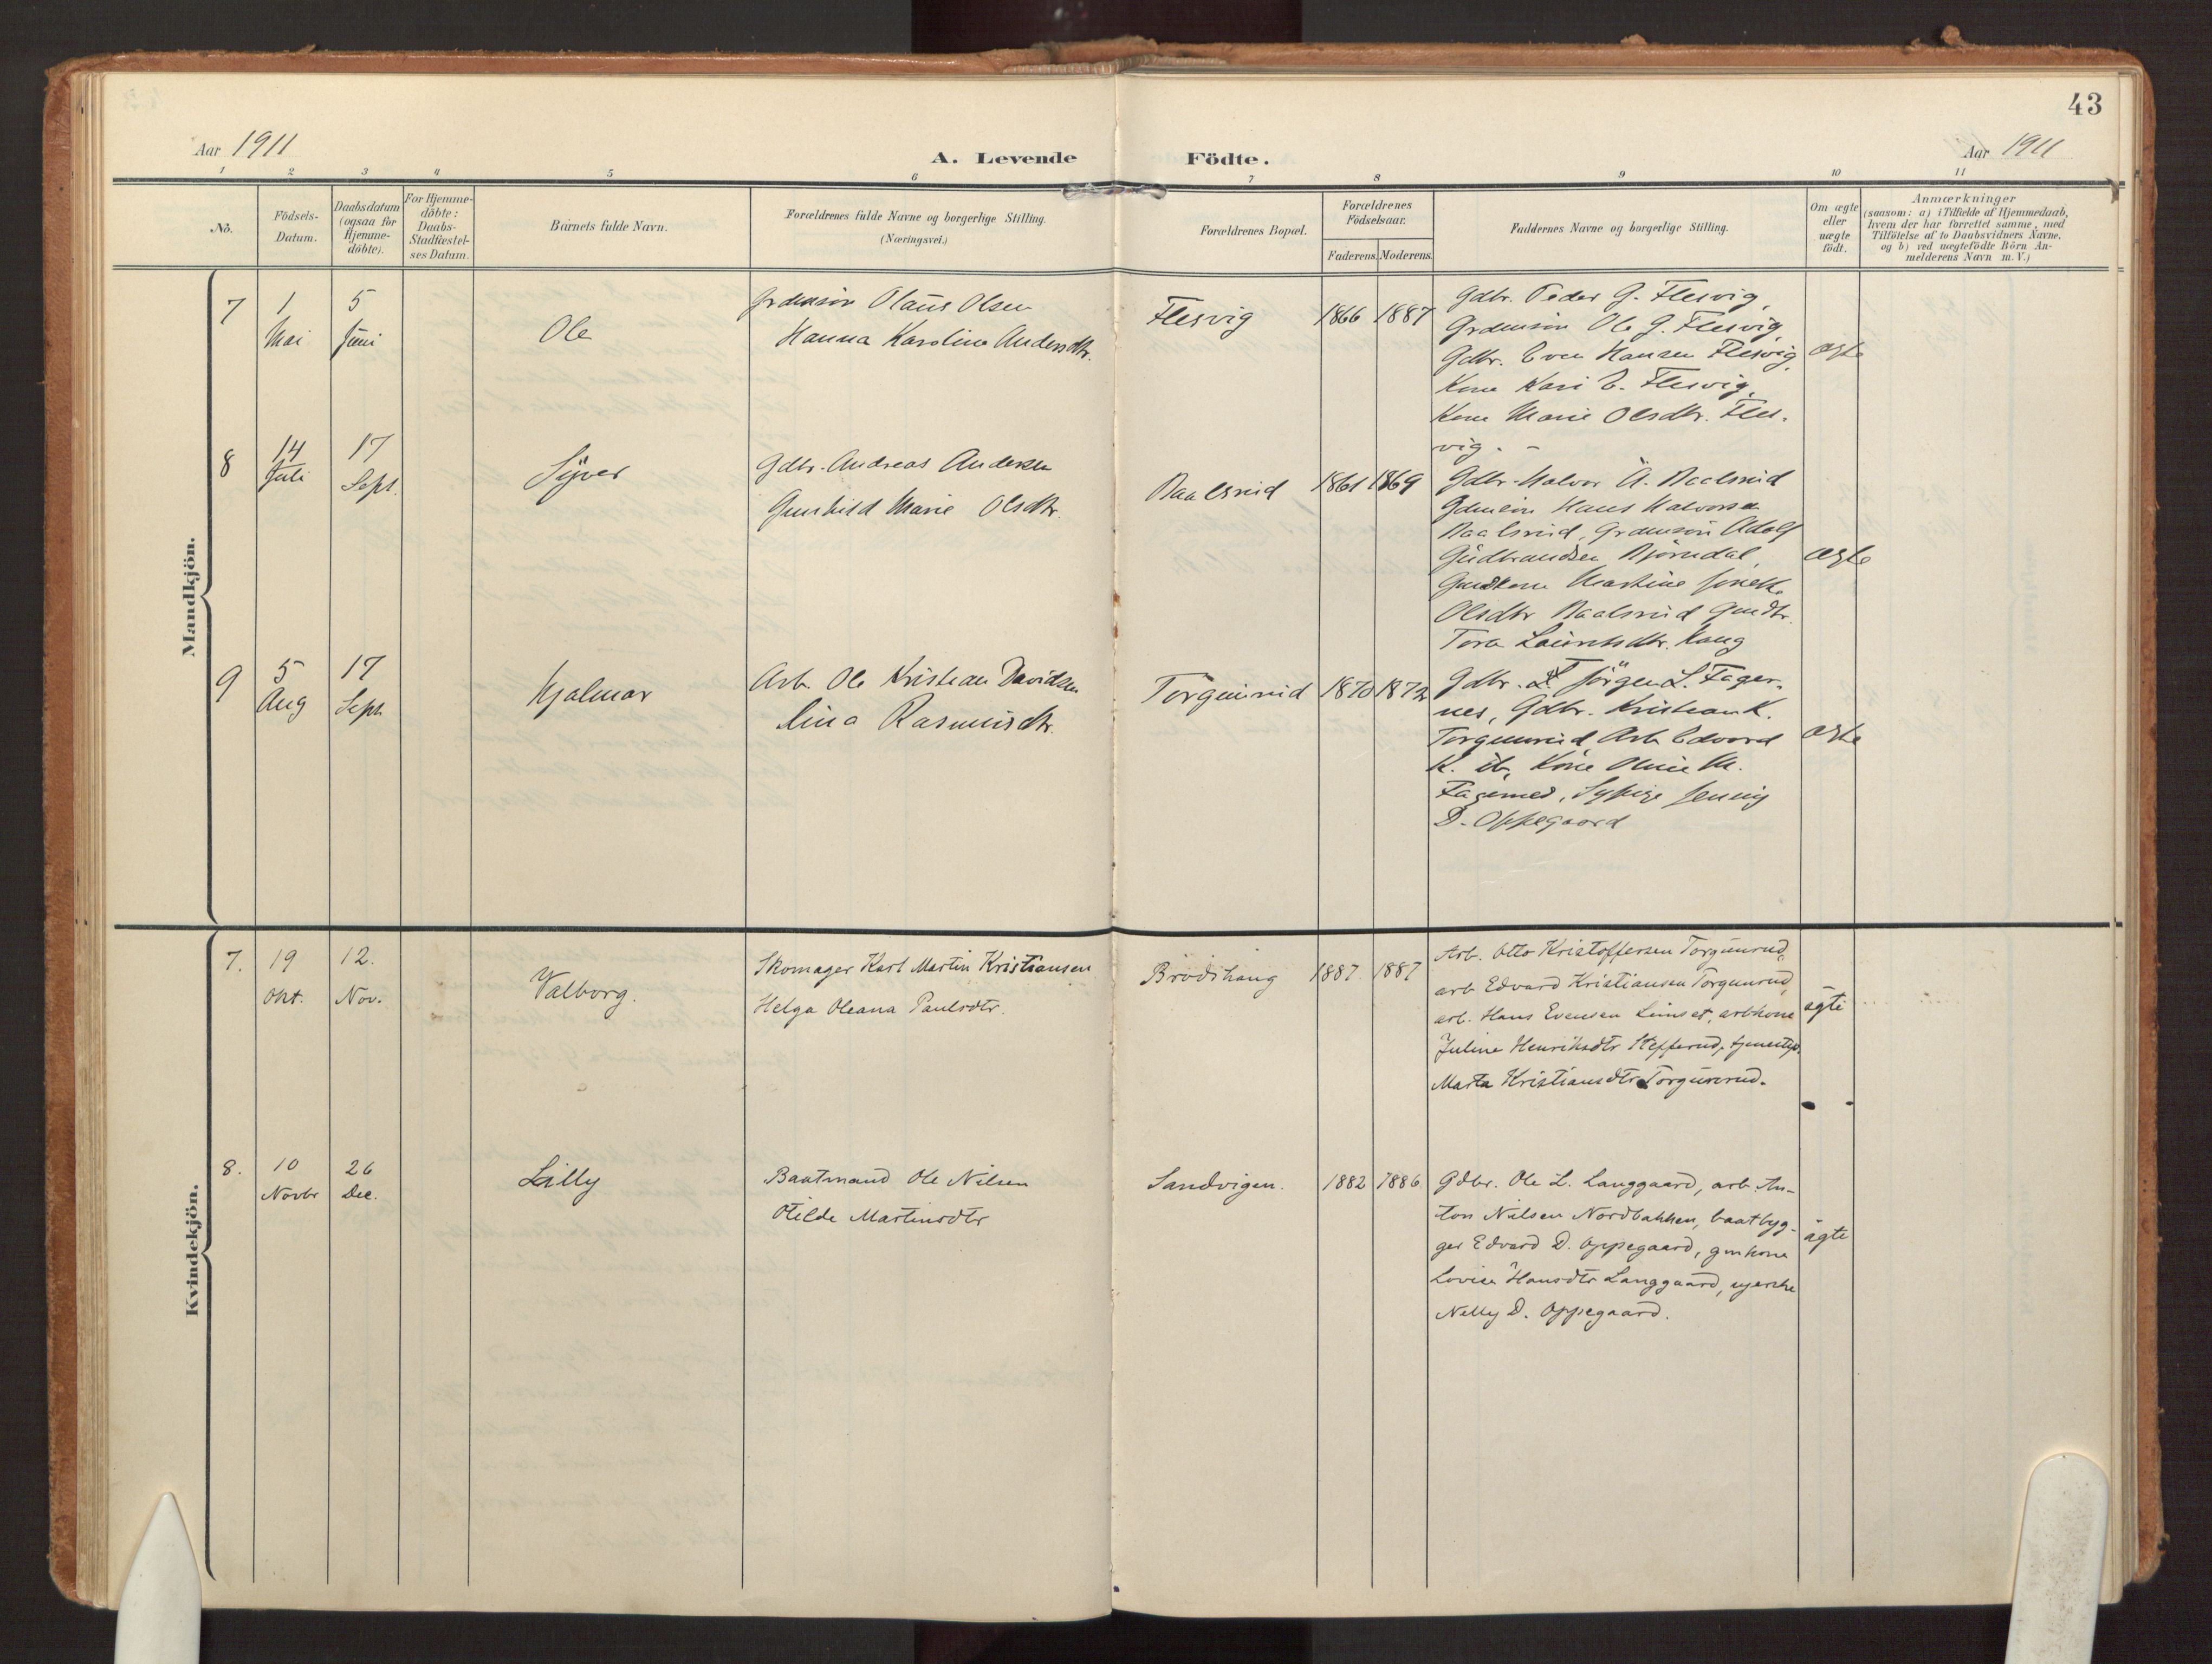 43
Aar 1911
A. Levende Födte.
Aar 1911
1 2 3 4 5 6 7 8 9 10 11
No.
Födsels-Datum.
Daabsdatum (ogsaa for Hjemme-döbte).
For Hjemme-döbte: Daabs-Stadfæstel-ses Datum.
Barnets fulde Navn.
Forældrenes fulde Navne og borgerlige Stilling.
(Næringsvei.)
Forældrenes Bopæl.
Forældrenes Födselsaar.
Faderens. Moderens.
Faddernes Navne og borgerlige Stilling.
Om ægte eller uægte födt.
Anmærkninger
(saasom: a) i Tilfælde af Hjemmedaab,
hvem der har forrettet samme, med
Tilföielse af to Daabsvidners Navne,
og b) ved uægtefödte Börn An-
melderens Navn m. V.)
Mandkjön.
7
1 Mai
5 Juni
Ole
Grdmsön Olaus Olsen
Hanna Karoline Andersdtr.
Flesvig
1866 1887
Gdbr. Peder G. Flesvig,
Grdmsön Ole G. Flesvig,
Gdbr. Even Hansen Flesvig,
Kone Kari E. Flesvig,
Kone Marie Olsdtr. Fles-
vig. -
ægte
8
14 Juli
17 Sept.
Syver
Gdbr. Andreas Andersen
Gunhild Marie Olsdtr.
Raalsrud
1861 1869
Gdbr. Halvor A. Raalsrud
Gdmsön Hans Halvorsen
Raalsrud, Grdmsön Adolf
Gudbrandsen Björndal,
Gmdkone Martine
Olsdtr Raalsrud Gmdtr.
Tora Lauritsdtr. Haug
ægte
9
5 Aug
17 Sept
Hjalmar
Arb. Ole Kristian Davidsen
Lina Rasmusdtr.
Torgunrud
1870 1872
Gdbr. Jörgen L. Fager-
nes, Gdbr. Kristian K.
Torgunrud, Arb. Edvard
K. ib, Kone Oline M.
Fagernes, Sypige Jenny
D. Oppegaard
ægte
Kvindekjön.
7.
19 Okt.
12. Nov.
Valborg.
Skomager Karl Martin Kristiansen
Helga Oleana Paulsdtr.
Brödshaug
1887. 1887
Arb. Otto Kristoffersen Torgunrud,
arb Edvard Kristiansen Torgunrud,
arb. Hans Evensen Linset, arbkone
Juline Henriksdtr Stefferud, tjenestp.
Marta Kristiansdtr Torgunrud.
ägte
8.
10 Novbr
26 Dec.
Lilly
Baatmand Ole Nilsen
Otilde Martinsdtr
Sandvigen.
1882 1886
Gdbr. Ole L. Langgaard, arb. An-
ton Nilsen Nordbakken, baatbyg-
ger Edvard D. Oppegaard, gmkone
Lovise Hansdtr Langgaard, syerske
Nelly D. Oppegaard.
ägte